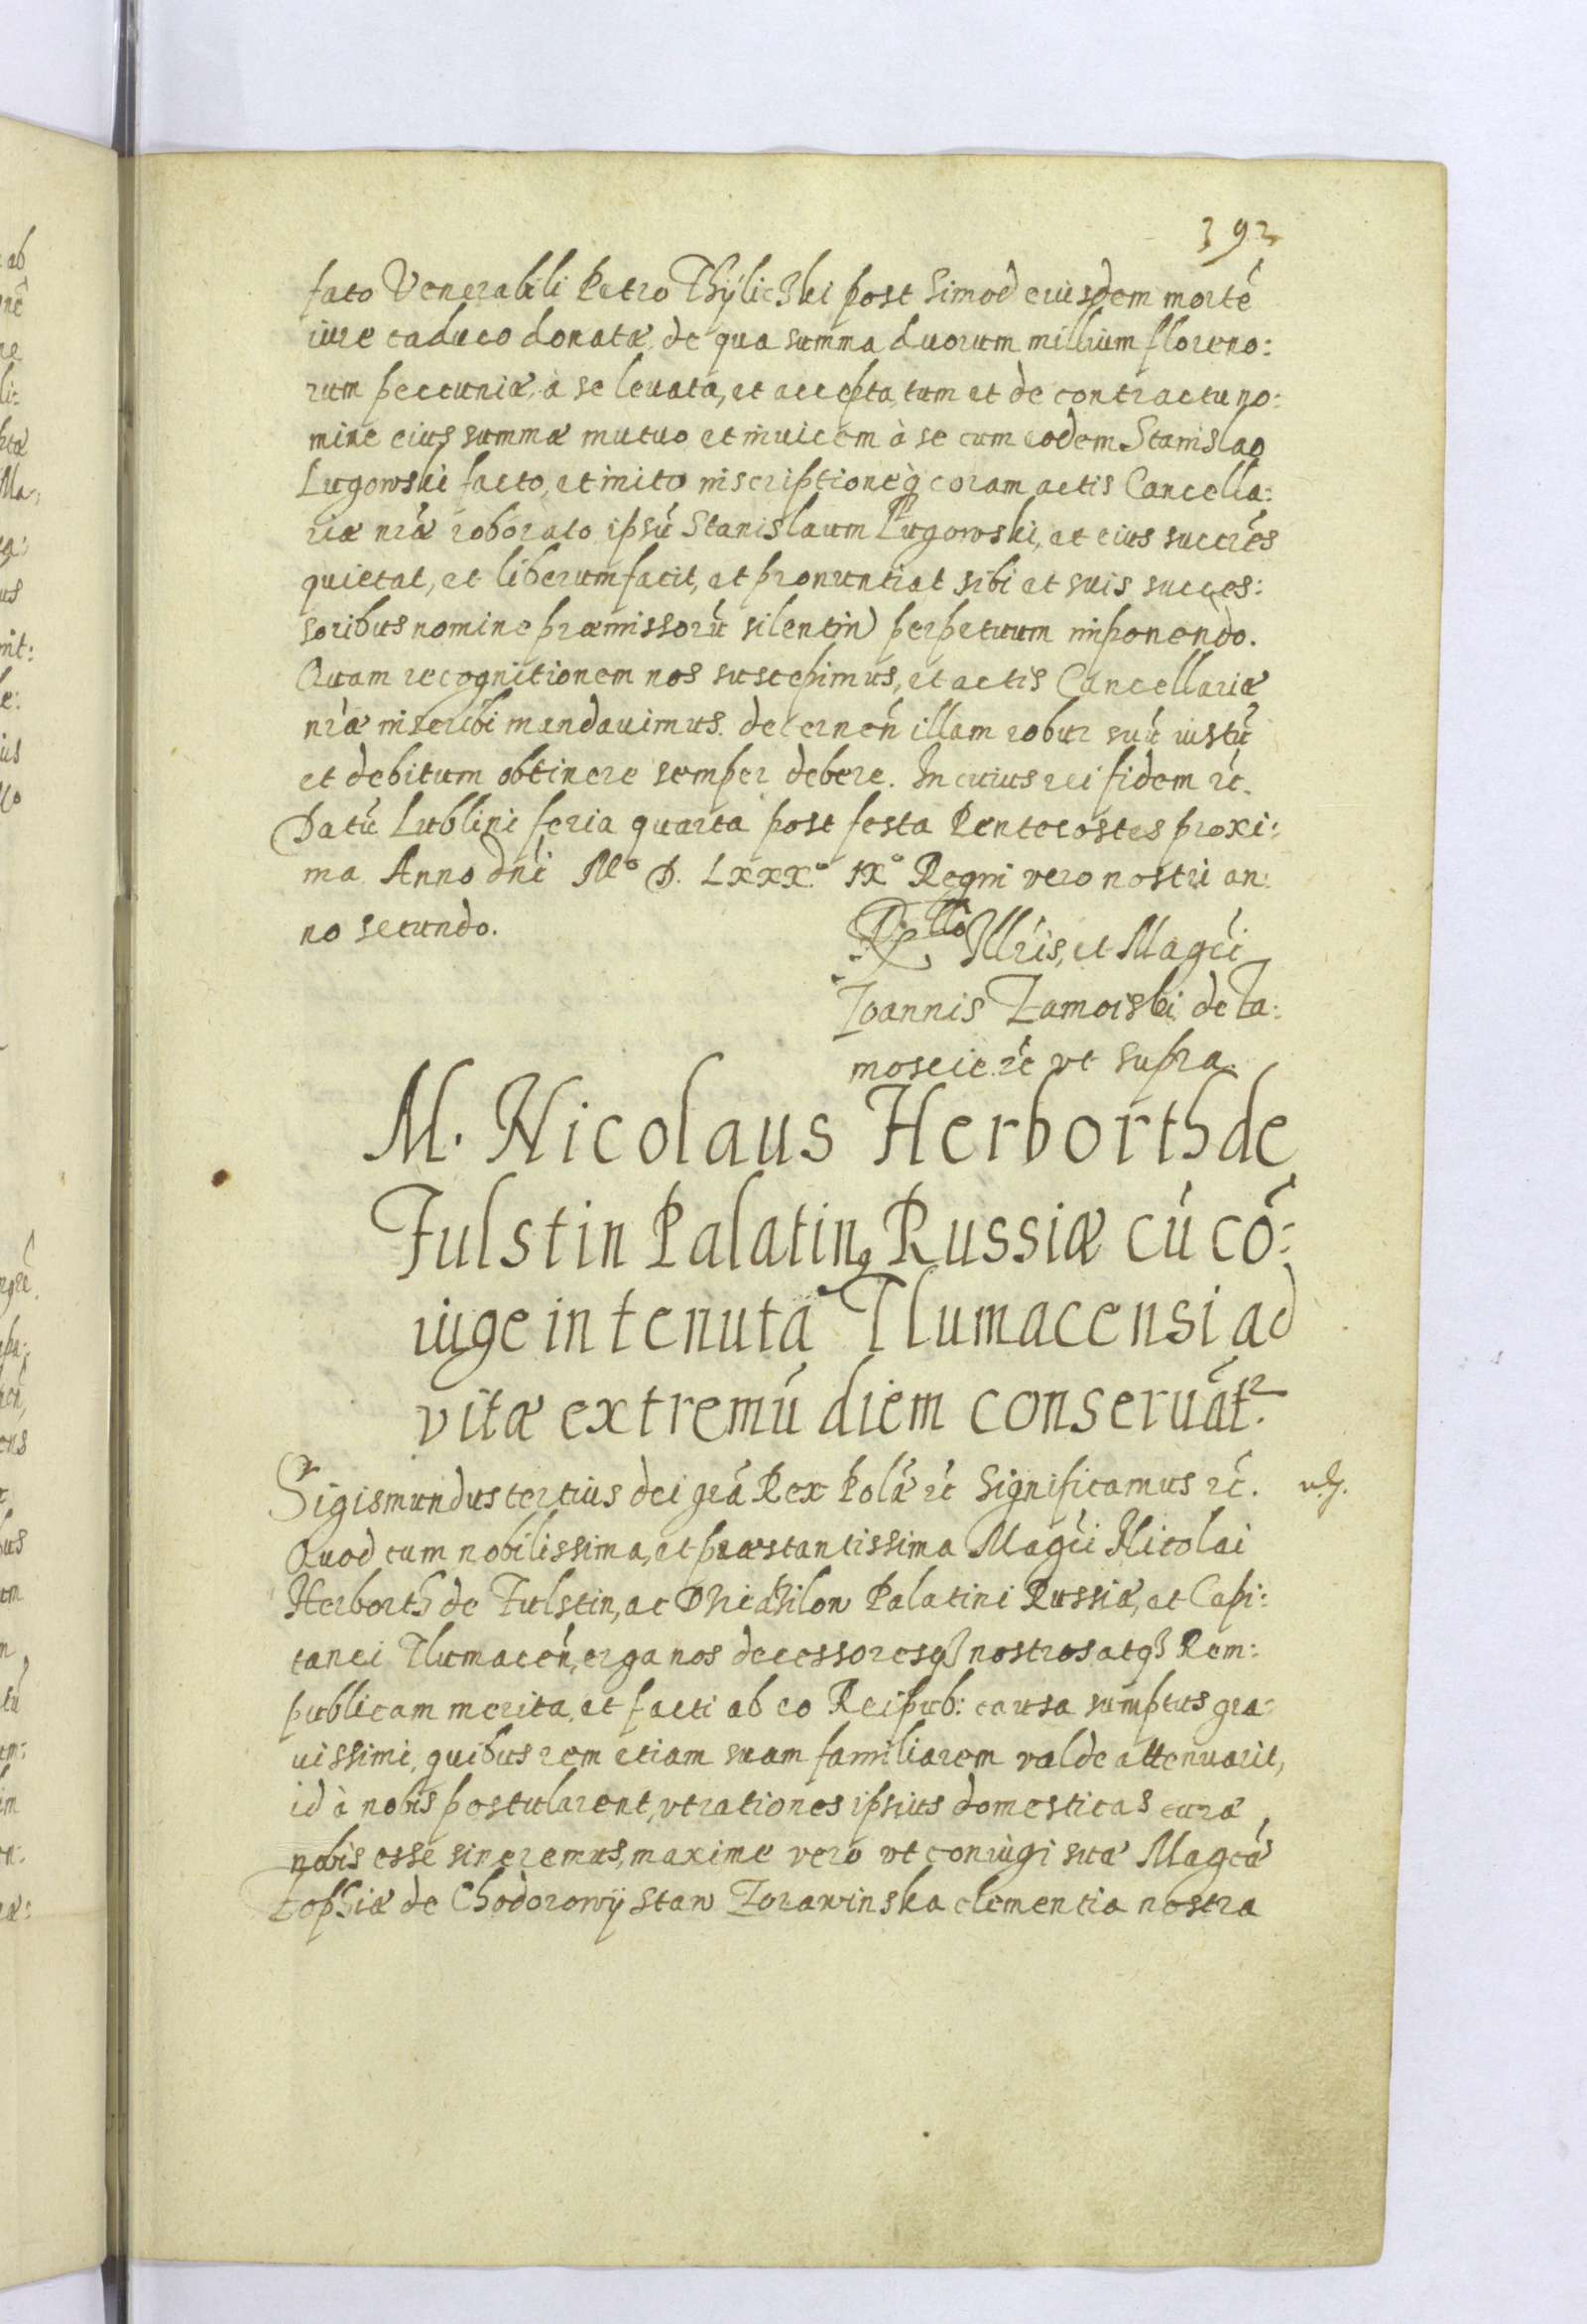 392
fato Venerabili Petro Thÿlicżki post simod eiusdem mortẽ
iure caduco donatæ, de qua summa duorum millium floreno:
rum pecuniæ, à se leuata, et accepta, tum et de contractu no:
mine eius summæ mutuo et inuicem à se cum eodem Stanislao
Lugowski facto, et inito inscriptioneq̃ coram actis Cancella:
riæ nr̃æ roborato ipsũ Stanislaum Lugowski, et eius succr̃es
quietat, et liberum facit, et pronuntiat sibi et suis succes:
soribus nomine præmissorũ silentiũ perpetuum imponendo.
Quam recognitionem nos suscepimus, et actis Cancellariæ
nr̃æ inscribi mandauimus. decerneñ illam robur suũ iustũ
et debitum obtinere semper debere. In cuius rei fidem ꝛc̃.
Datũ Lublini feria quarta post festa Pentecostes proxi:
ma Anno dñi Mº D. Lxxx.º ixº Regni vero nostri an:
no secundo.
Rel̃lo Illr̃is, et Magc̃i
Joannis Zamoiski de Za:
moscie ꝛc̃ vt supra.
M. Nicolaus Herborth de
Fulstin Palatinꝰ Russiæ cũ cõ:
iuge in tenuta Tlumacensi ad
vitæ extremũ diem conseruãt.ꝛ
Sigismundus tertius dei gr̃a Rex Polã ꝛc̃ Significamus ꝛc̃.
Quod cum nobilissima, et præstantissima Magc̃i Nicolai
Herborth de Fulstin, ac Palatini Russiæ, et Capi:
tanei Tlumaceñ, erga nos decessoresqꝫ nostros atqꝫ Rem:
publicam merita, et facti ab eo Reipub: causa sumptus gra:
uissimi, quibus rem etiam suam familiarem valde attenuarit,
id à nobis postularent, vt rationes ipsius domesticas curæ
nobis esse sineremus, maxime vero vt coniugi suæ Magcæ̃
Zophiæ de Chodorowÿ staw Zorawinska clementia nostra